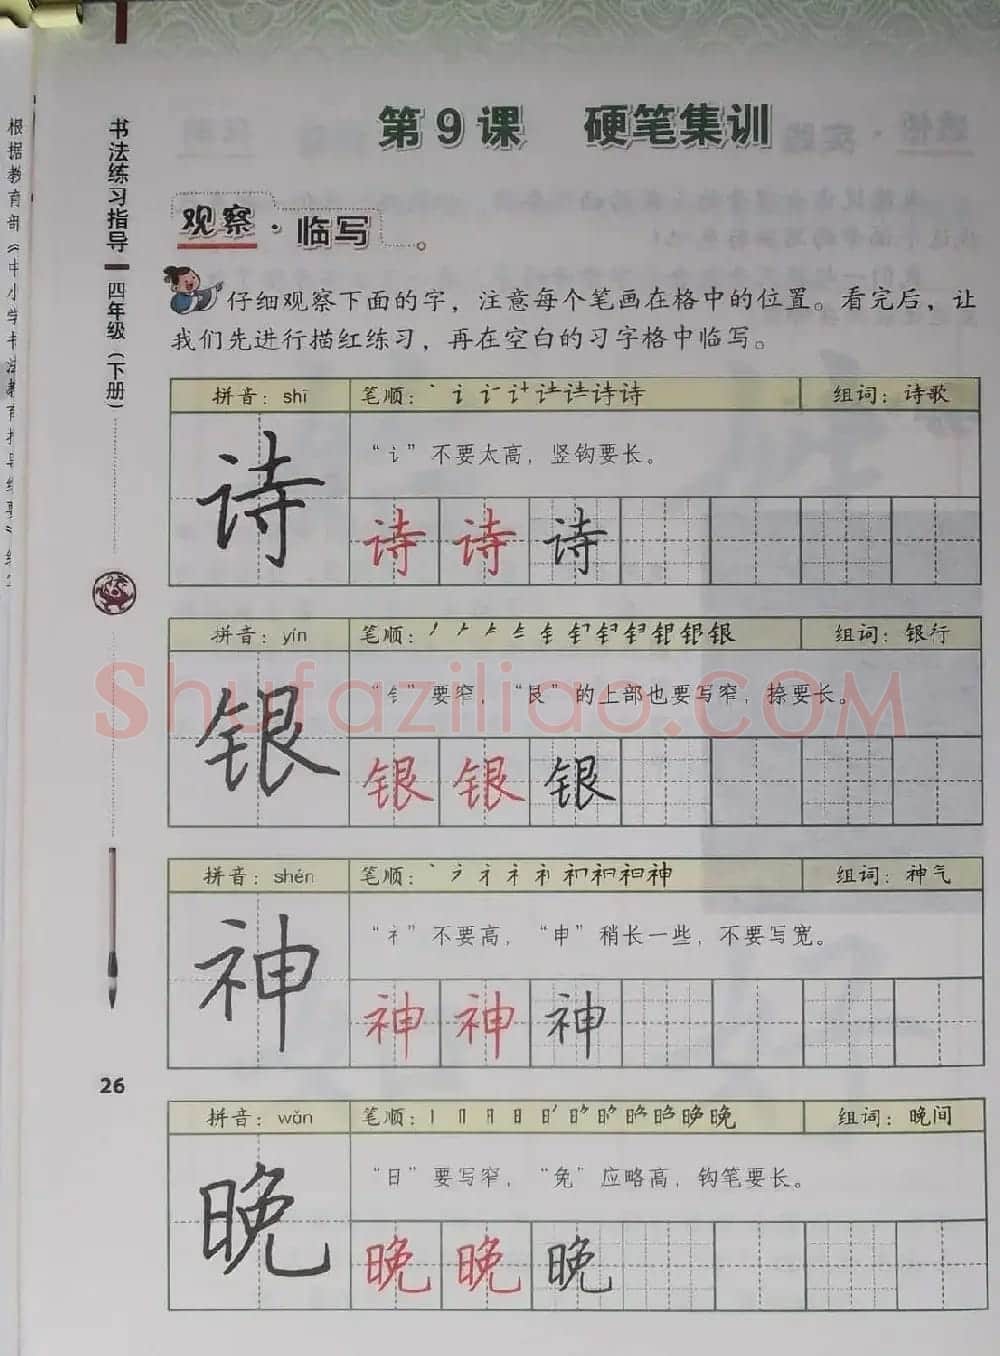 第9课 硬笔集训
观察·临写。
仔细观察下面的字，注意每个笔画在格中的位置。看完后，让
我们先进行描红练习，再在空白的习字格中临写。
拼音：shī 笔顺： 组词：诗歌
诗
“讠”不要太高，竖钩要长。
诗 诗 诗
拼音：yín 笔顺： 组词：银行
银
“钅”要窄，“艮”的上部也要写窄，捺要长。
银 银 银
拼音：shén 笔顺： 组词：神气
神
“礻”不要高，“申”稍长一些，不要写宽。
神 神 神
拼音：wǎn 笔顺： 组词：晚间
晚
“日”要写窄，“免”应略高，钩笔要长。
晚 晚 晚
书法练习指导 四年级（下册）
26
根据教育部《中小学书法教育指导纲要》
Shufaziliao.COM